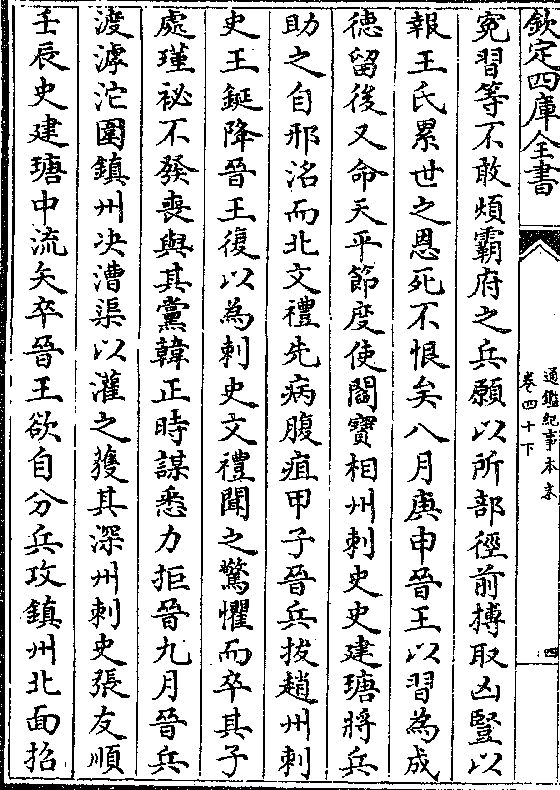 欽定四庫全書
通鑑紀事本末
卷四十下
四
寃習等不敢煩霸府之兵願以所部徑前搏取凶豎以
報王氏累世之恩死不恨矣八月庚申晉王以習為成
德留後又命天平節度使閻寶相州刺史史建瑭將兵
助之自邢洺而北文禮先病腹疽甲子晉兵拔趙州刺
史王鋋降晉王復以為刺史文禮聞之驚懼而卒其子
處瑾祕不發喪與其黨韓正時謀悉力拒晉九月晉兵
渡滹沱圍鎮州决漕渠以灌之獲其深州刺史張友順
壬辰史建瑭中流矢卒晉王欲自分兵攻鎮州北面招